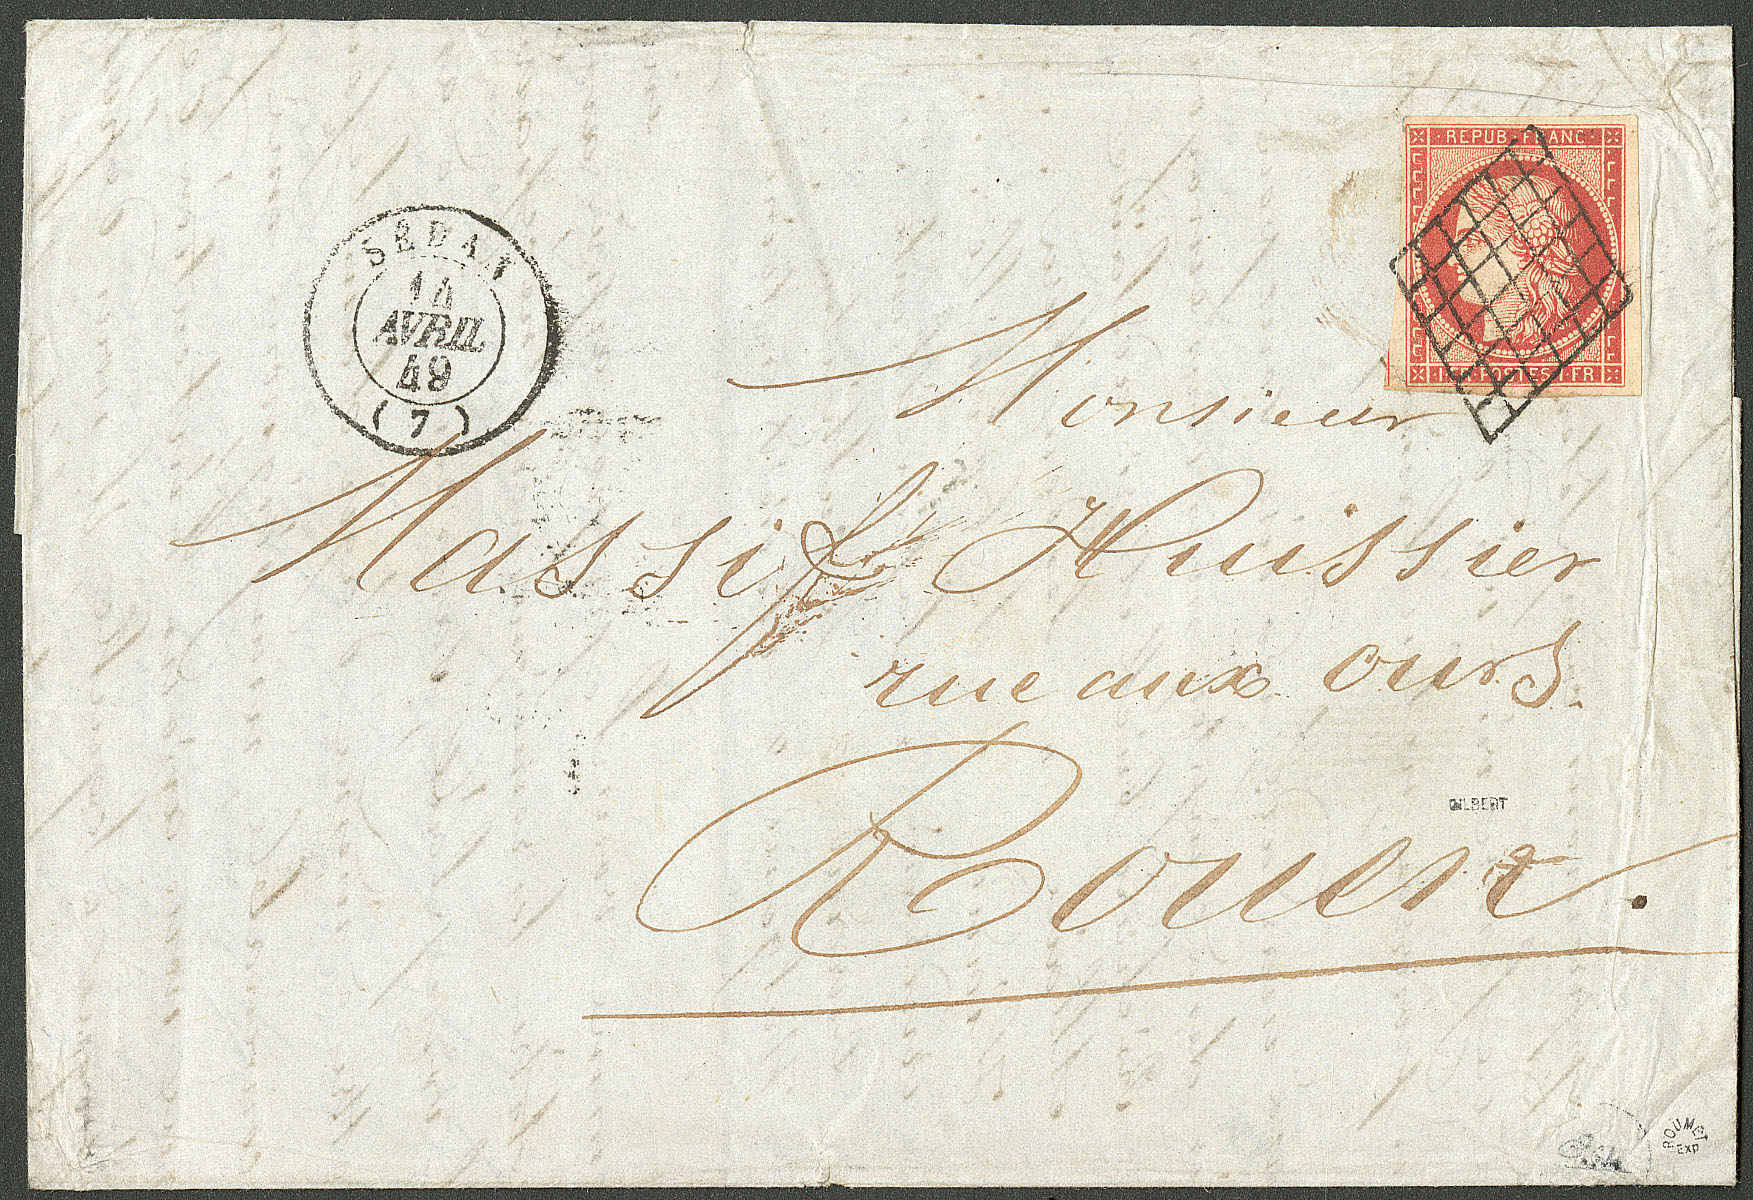 REPUB · FRANC
1 F · POSTES · 1 FR
SEDAN
14
AVRIL
49
(7)
Monsieur
Massif Huissier
rue aux ours.
Rouen.
GILBERT
ROUMET
EXP